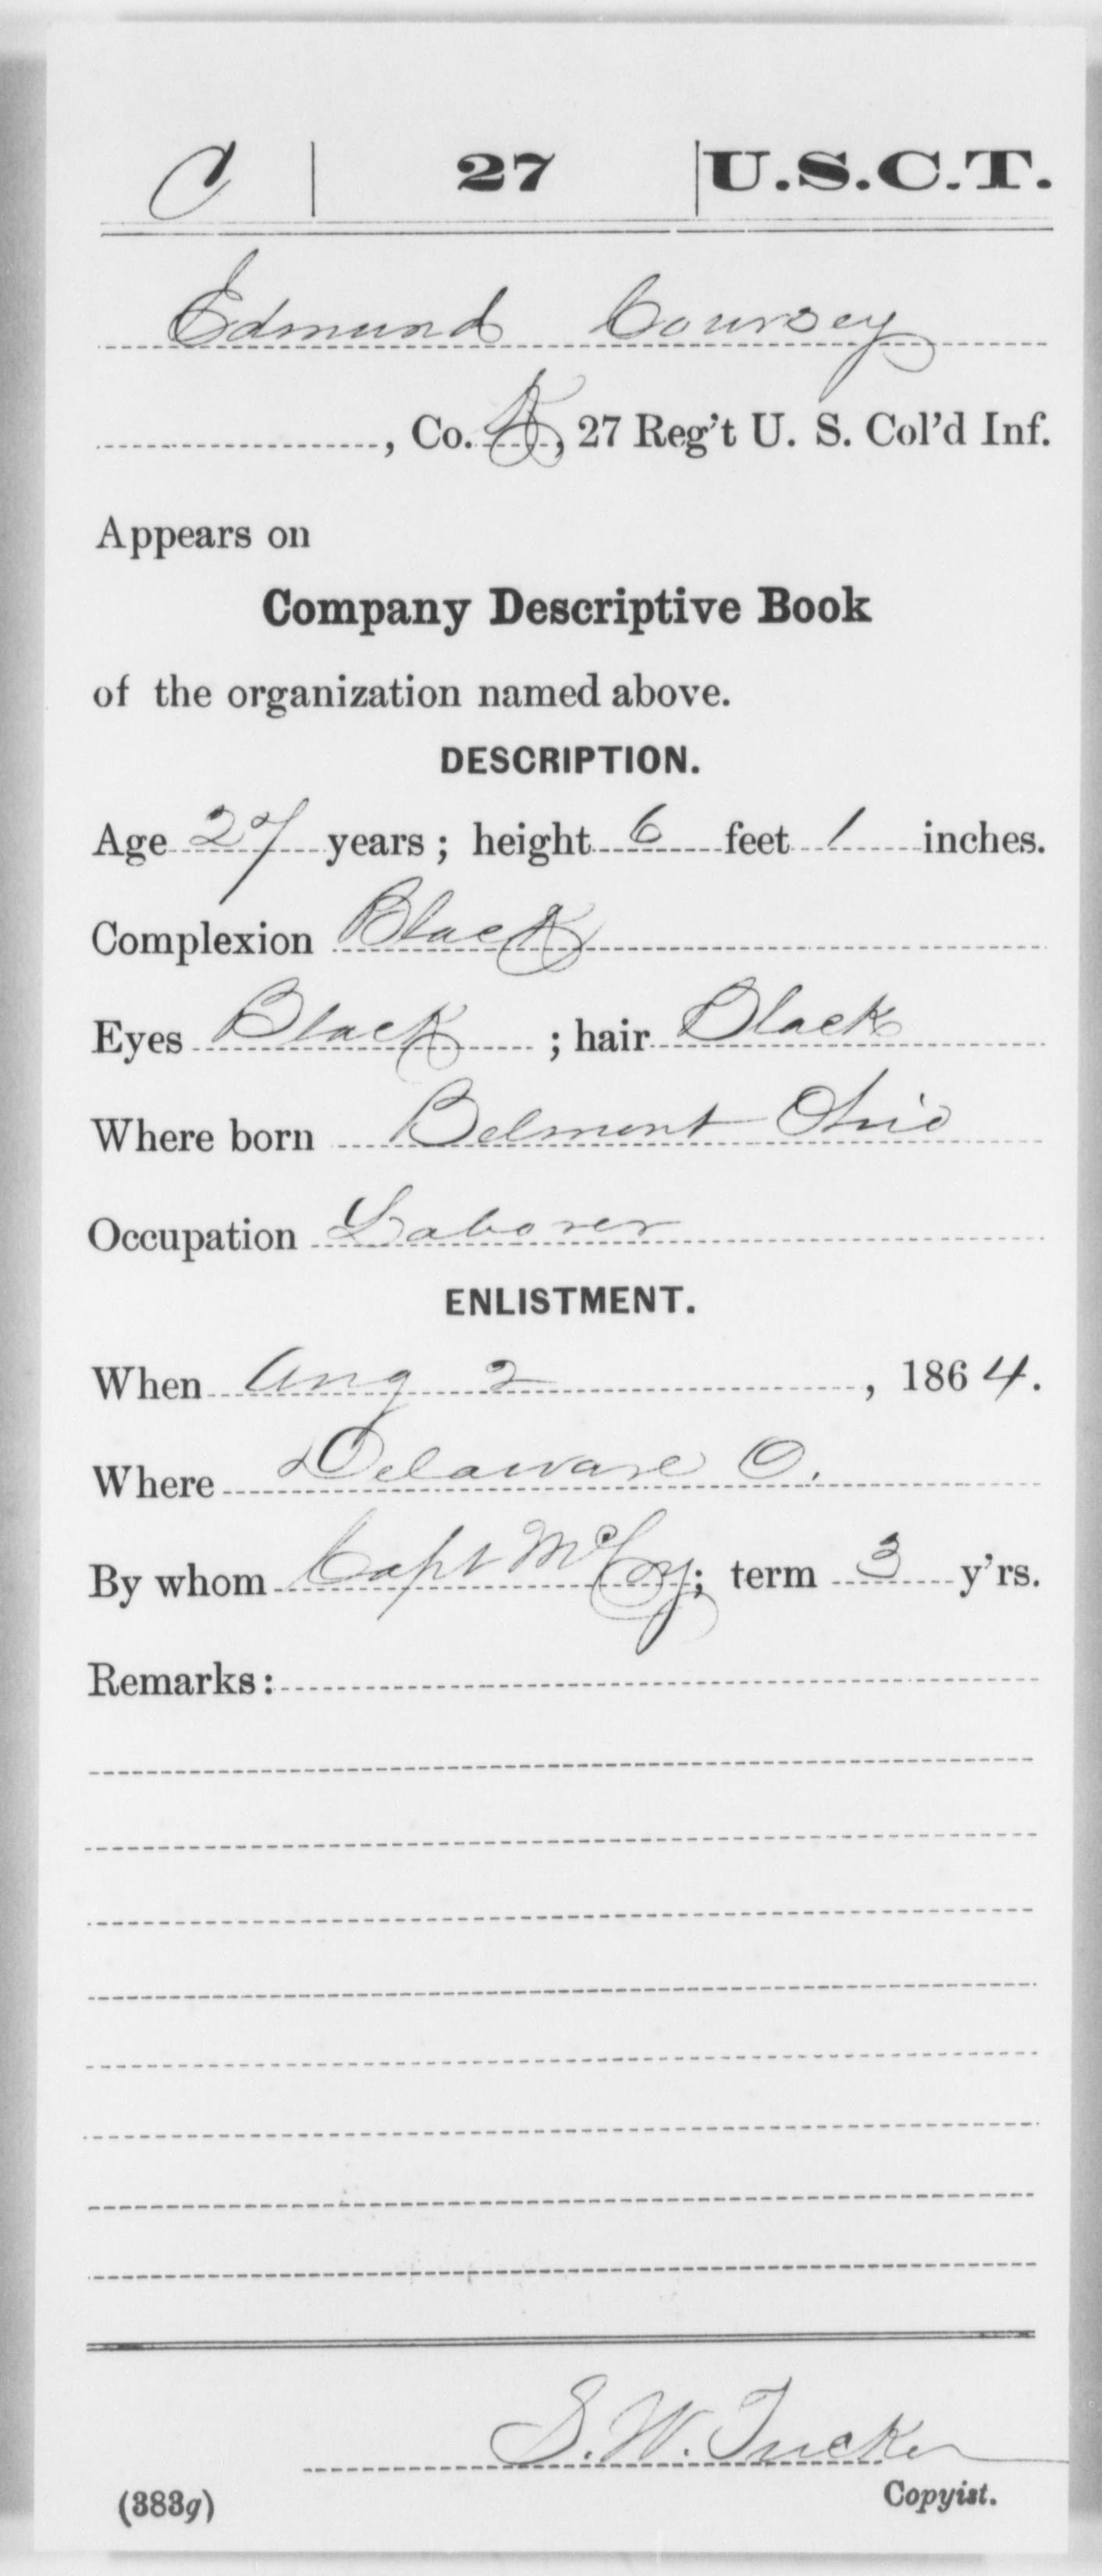 C | 27 | U.S.C.T.
Edmund Coursey
, Co. K, 27 Reg't U. S. Col'd Inf.
Appears on
Company Descriptive Book
of the organization named above.
DESCRIPTION.
Age 27 years; height 6 feet 1 inches.
Complexion Black
Eyes Black; hair Black
Where born Belmont Ohio
Occupation Laborer
ENLISTMENT.
When Aug 2, 1864.
Where Delaware O.
By whom Capt McCoy; term 3 y'rs.
Remarks:
S. W. Tucker
(383g) Copyist.